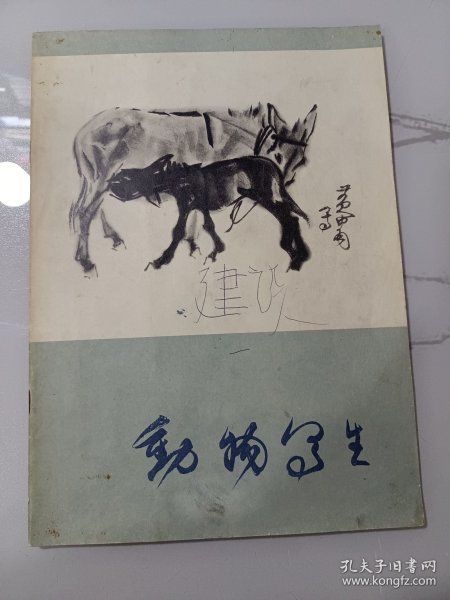 黄胄
写
建设
動物写生
孔夫子旧书网
www.kongfz.com